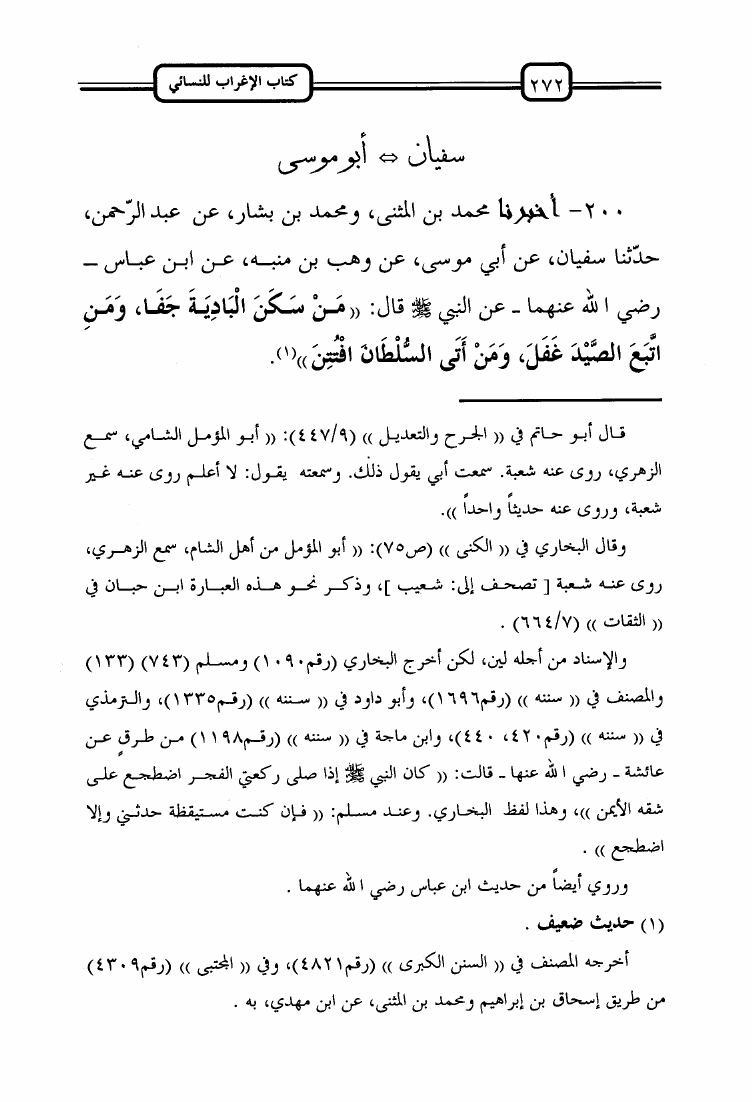 ٢٧٢ كتاب الإغراب للنسائي
سفيان ⇔ أبو موسى
٢٠٠- أخبرنا محمد بن المثنى، ومحمد بن بشار، عن عبد الرّحمن،
حدّثنا سفيان، عن أبي موسى، عن وهب بن منبه، عن ابن عباس ـ
رضي الله عنهما ـ عن النبي ﷺ قال: «مَنْ سَكَنَ الْبَادِيَةَ جَفَا، وَمَنِ
اتَّبَعَ الصَّيْدَ غَفَلَ، وَمَنْ أَتَى السُّلْطَانَ افْتُتِنَ»(١).
قال أبو حاتم في « الجرح والتعديل » (٤٤٧/٩): « أبو المؤمل الشامي، سمع
الزهري، روى عنه شعبة. سمعت أبي يقول ذلك. وسمعته يقول: لا أعلم روى عنه غير
شعبة، وروى عنه حديثاً واحداً ».
وقال البخاري في « الكنى » (ص٧٥): « أبو المؤمل من أهل الشام، سمع الزهري،
روى عنه شعبة [ تصحف إلى: شعيب ]، وذكر نحو هذه العبارة ابن حبان في
« الثقات » (٦٦٤/٧) .
والإسناد من أجله لين، لكن أخرج البخاري (رقم١٠٩٠) ومسلم (٧٤٣) (١٣٣)
والمصنف في « سننه » (رقم١٦٩٦)، وأبو داود في « سننه » (رقم١٣٣٥)، والترمذي
في « سننه » (رقم٤٢٠، ٤٤٠)، وابن ماجة في « سننه » (رقم١١٩٨) من طرقٍ عن
عائشة ـ رضي الله عنها ـ قالت: « كان النبي ﷺ إذا صلى ركعتي الفجر اضطجع على
شقه الأيمن »، وهذا لفظ البخاري. وعند مسلم: « فإن كنت مستيقظة حدثني وإلا
اضطجع » .
وروي أيضاً من حديث ابن عباس رضي الله عنهما .
(١) حديث ضعيف .
أخرجه المصنف في « السنن الكبرى » (رقم٤٨٢١)، وفي « المجتبى » (رقم٤٣٠٩)
من طريق إسحاق بن إبراهيم ومحمد بن المثنى، عن ابن مهدي، به .